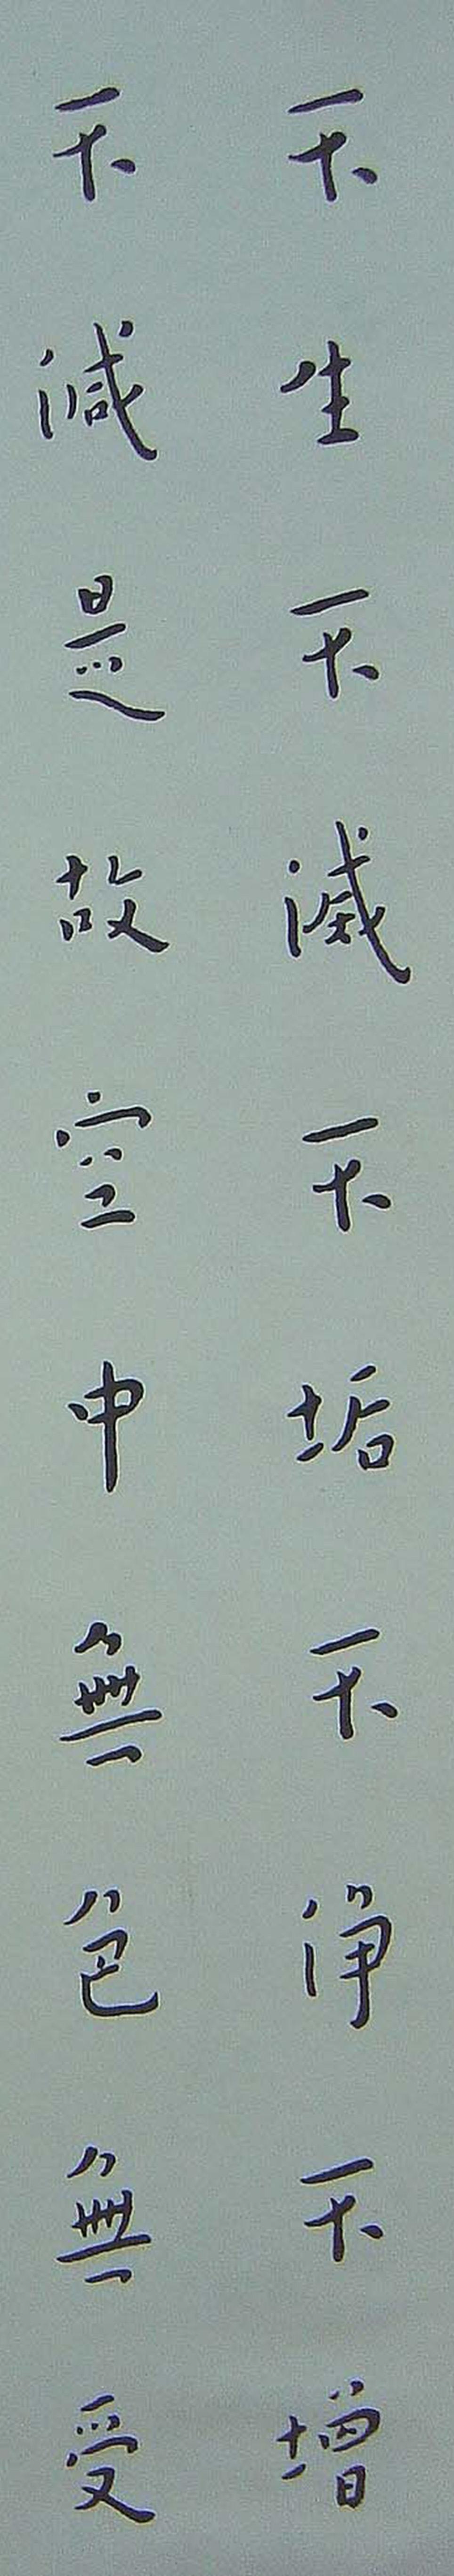 不生不滅不垢不淨不增
不減是故空中無色無受